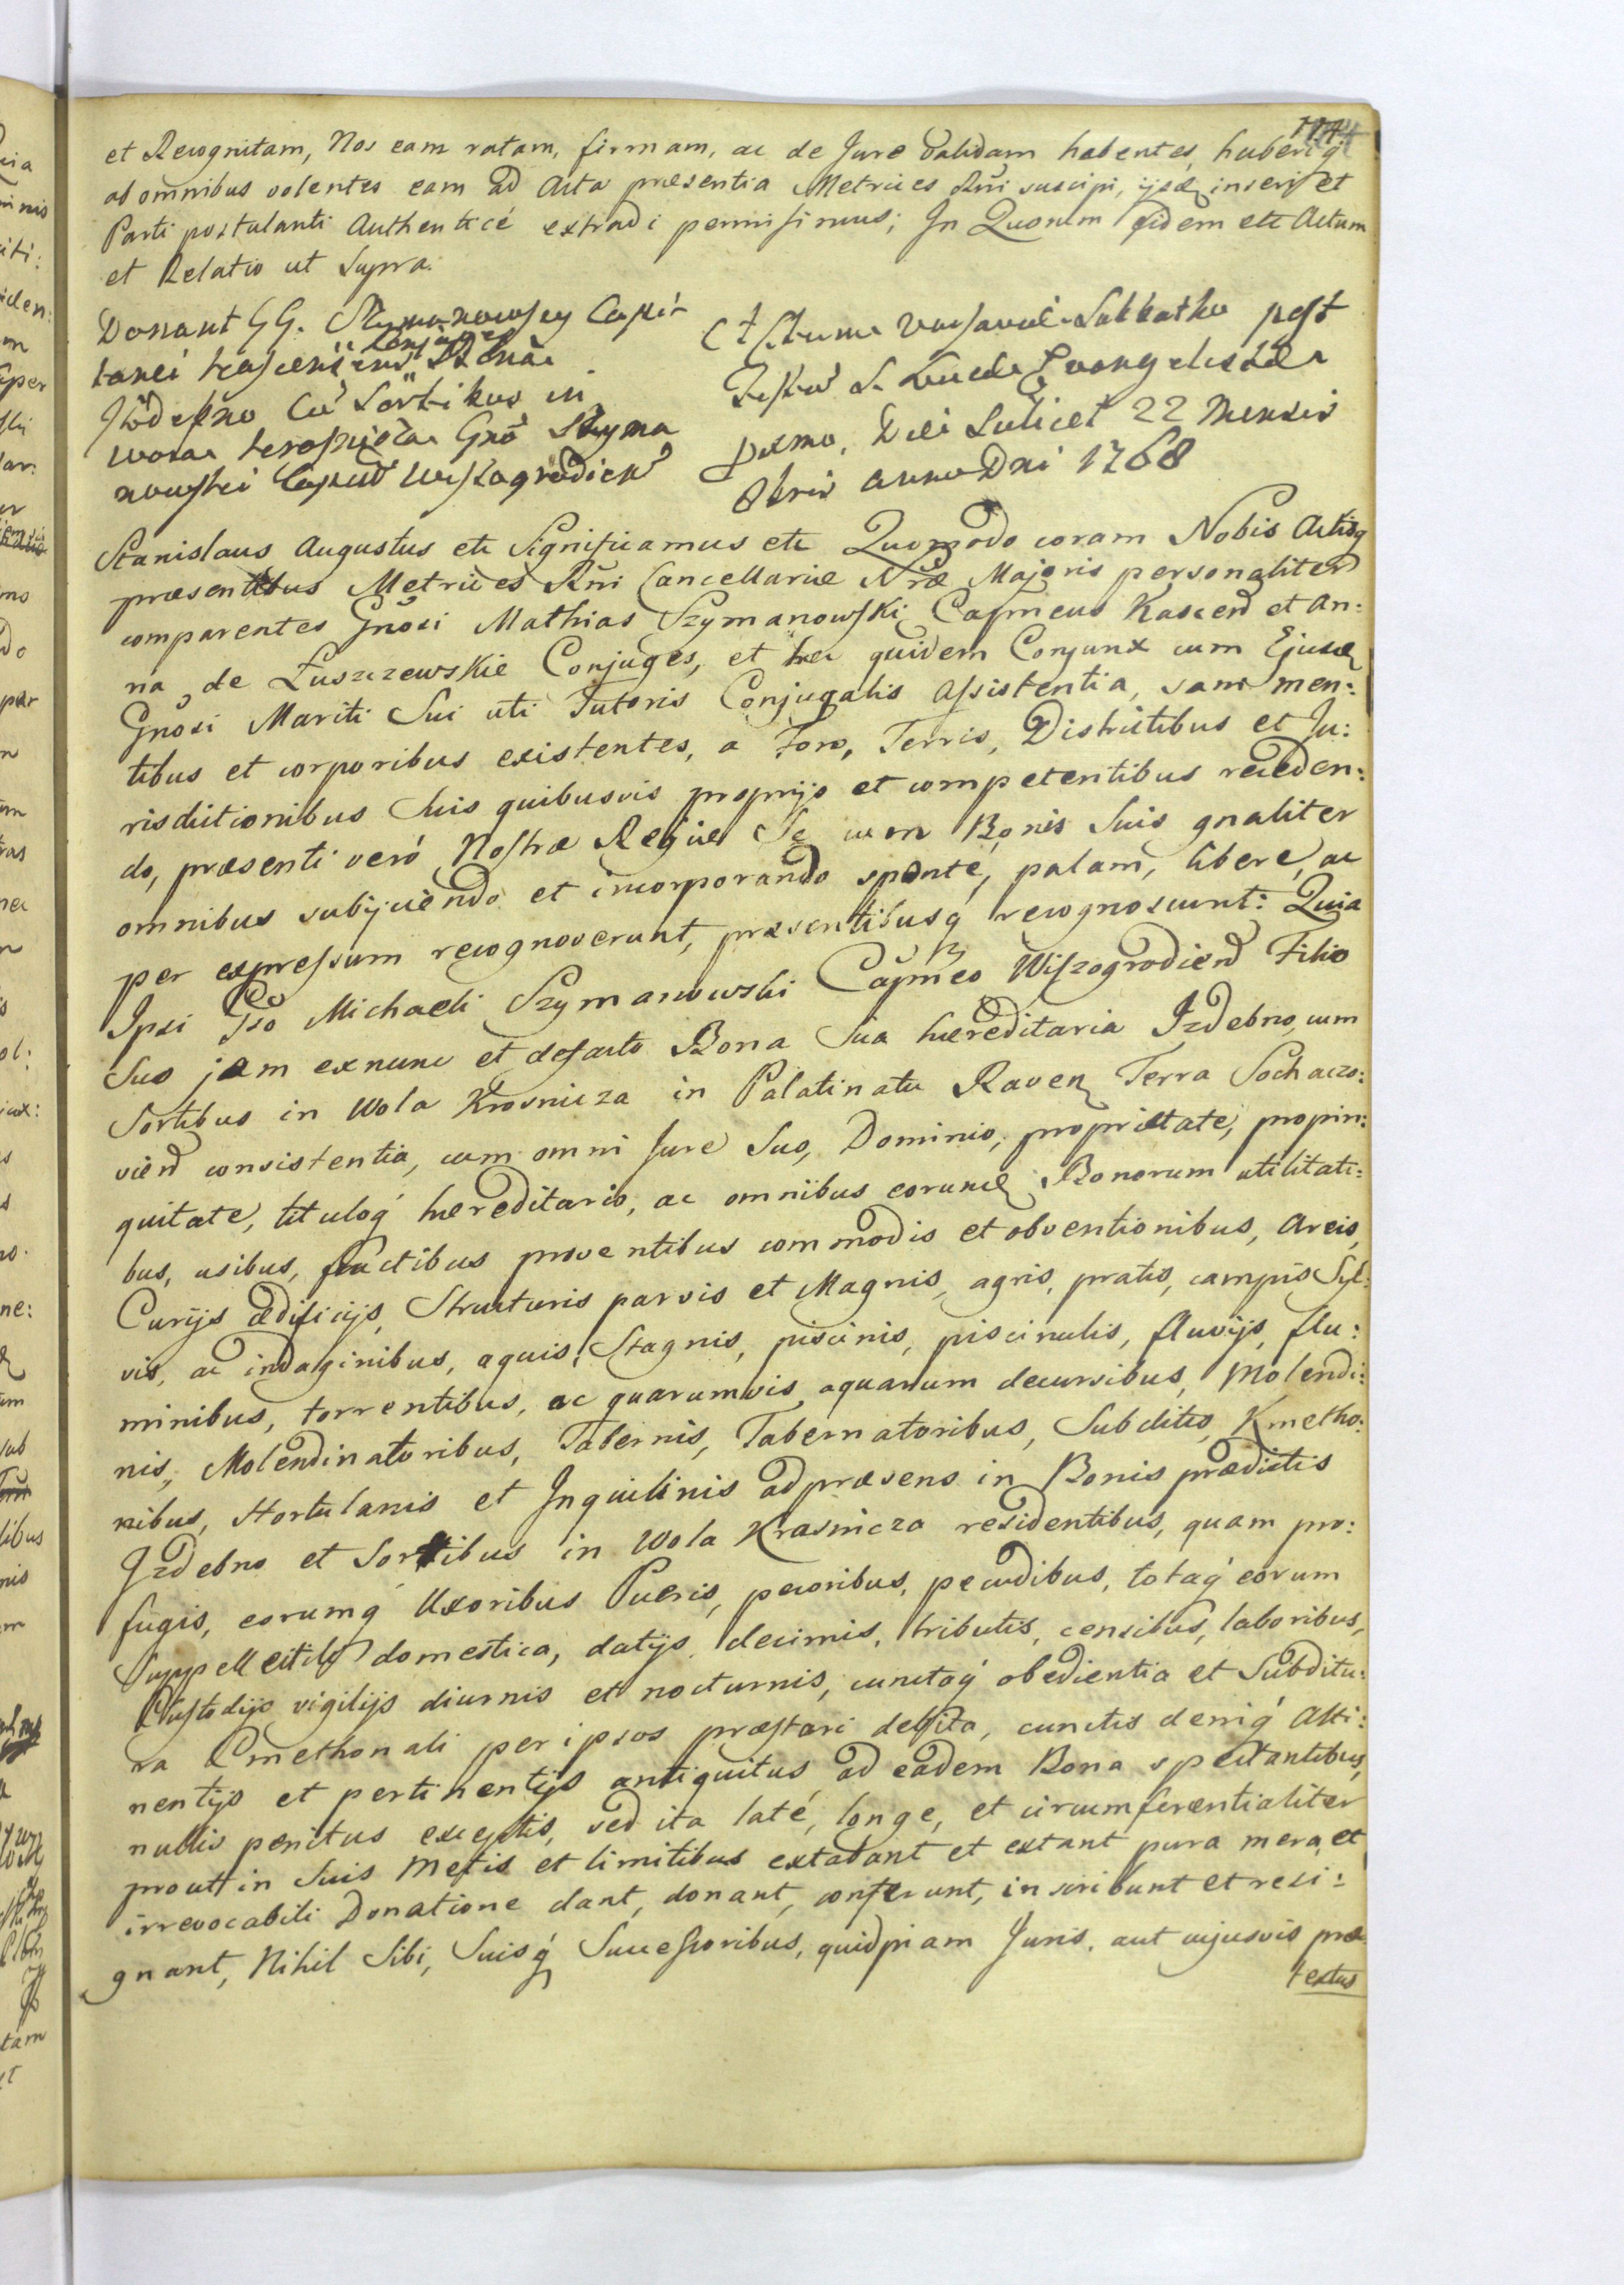 et Recognitam, Nos eam ratam, firmam, ac de Jure validam habentes, haberiq́
ab omnibus volentes eam ad Acta præsentia Metrices Rñi suscipi, ijsq inseri et
Parti postulanti Authenticé extradi permisimus; In Quorum fidem etc Actum
et Relatio ut Supra.
Donant GG. Szymanowscy Capit
tanei Kascien Conjuges Bona
Izdebno Cũ Sortibus in
Wola Krosnicza Gnõ Szyma
nowski Capit Wyszogrodien
Actum Varsaviæ Sabbatho post
Festum S. Lucæ Evangelistæ
pxmo, Diei Scilicet 22 Mensis
8bris Anno Dni 1768
Stanislaus Augustus etc Significamus etc Quomodo coram Nobis Actisq
præsentibus Metrices Rñi Cancellariæ Nræ Majoris personaliter
comparentes Gnõsi Mathias Szymanowski Capneus Kascien et An:
na de Łuszczewskie Conjuges, et hæc quidem Conjunx cum Ejusd
Gnõsi Mariti Sui uti Tutoris Conjugalis Assistentia, sani men:
tibus et corporibus existentes, a Foro, Terris, Districtibus et Ju:
risdictionibus Suis quibusvis proprijs et competentibus receden:
do, præsenti veró Nostræ Regiæ Se cum Bonis Suis gnaliter
omnibus subijciendo et incorporando sponté, palam, libere, ac
per expressum recognoverunt, præsentibusq́ recognoscunt: Quia
Ipsi Gso Michaeli Szymanowski Capneo Wiszogrodien Filio
Suo jam exnunc et defacto Bona Sua hæreditaria Izdebno, cum
Sortibus in Wola Krosnicza in Palatinatu Raven Terra Sochaczo:
vien consistentia, cum omni Jure Suo, Dominio, proprietate, propin:
quitate, tituloq́ hæreditario, ac omnibus eorund Bonorum utilitati:
bus, usibus, fructibus proventibus commodis et obventionibus, areis,
Curijs ædificijs, Structuris parvis et Magnis, agris, pratis, campis Syl:
vis, ac indaginibus, aquis, Stagnis, piscinis, piscinulis, fluvijs, flu:
minibus, torrentibus, ac quarumvis aquarum decursibus, Molendi:
nis, Molendinatoribus, Tabernis, Tabernatoribus, Subditis, Kmetho:
nibus, Hortulanis et Inquilinis ad præsens in Bonis prædictis
Izdebno et Sortibus in Wola Krasnicza residentibus, quam pro:
fugis, eorumq́ Uxoribus Pueris, pecoribus, pecudibus, totaq́ eorum
Suppellectili domestica, datijs, decimis, tributis, censibus, laboribus,
Custodijs vigilijs diurnis et nocturnis, cunctaq́ obedientia et Subditu:
ra Cmethonali per ipsos præstari debita, cunctis deniq́ Atti:
nentijs et pertinentijs antiquitus ad eadem Bona spectantibus,
nullis penitus exceptis, sed ita laté, longe, et circumferentialiter
proutt in Suis Metis et limitibus extabant et extant pura mera, et
irrevocabili Donatione dant, donant, conferunt, inscribunt et resi:
gnant, Nihil Sibi, Suisq́ Successoribus, quidpiam Juris, aut cujusvis præ
textus